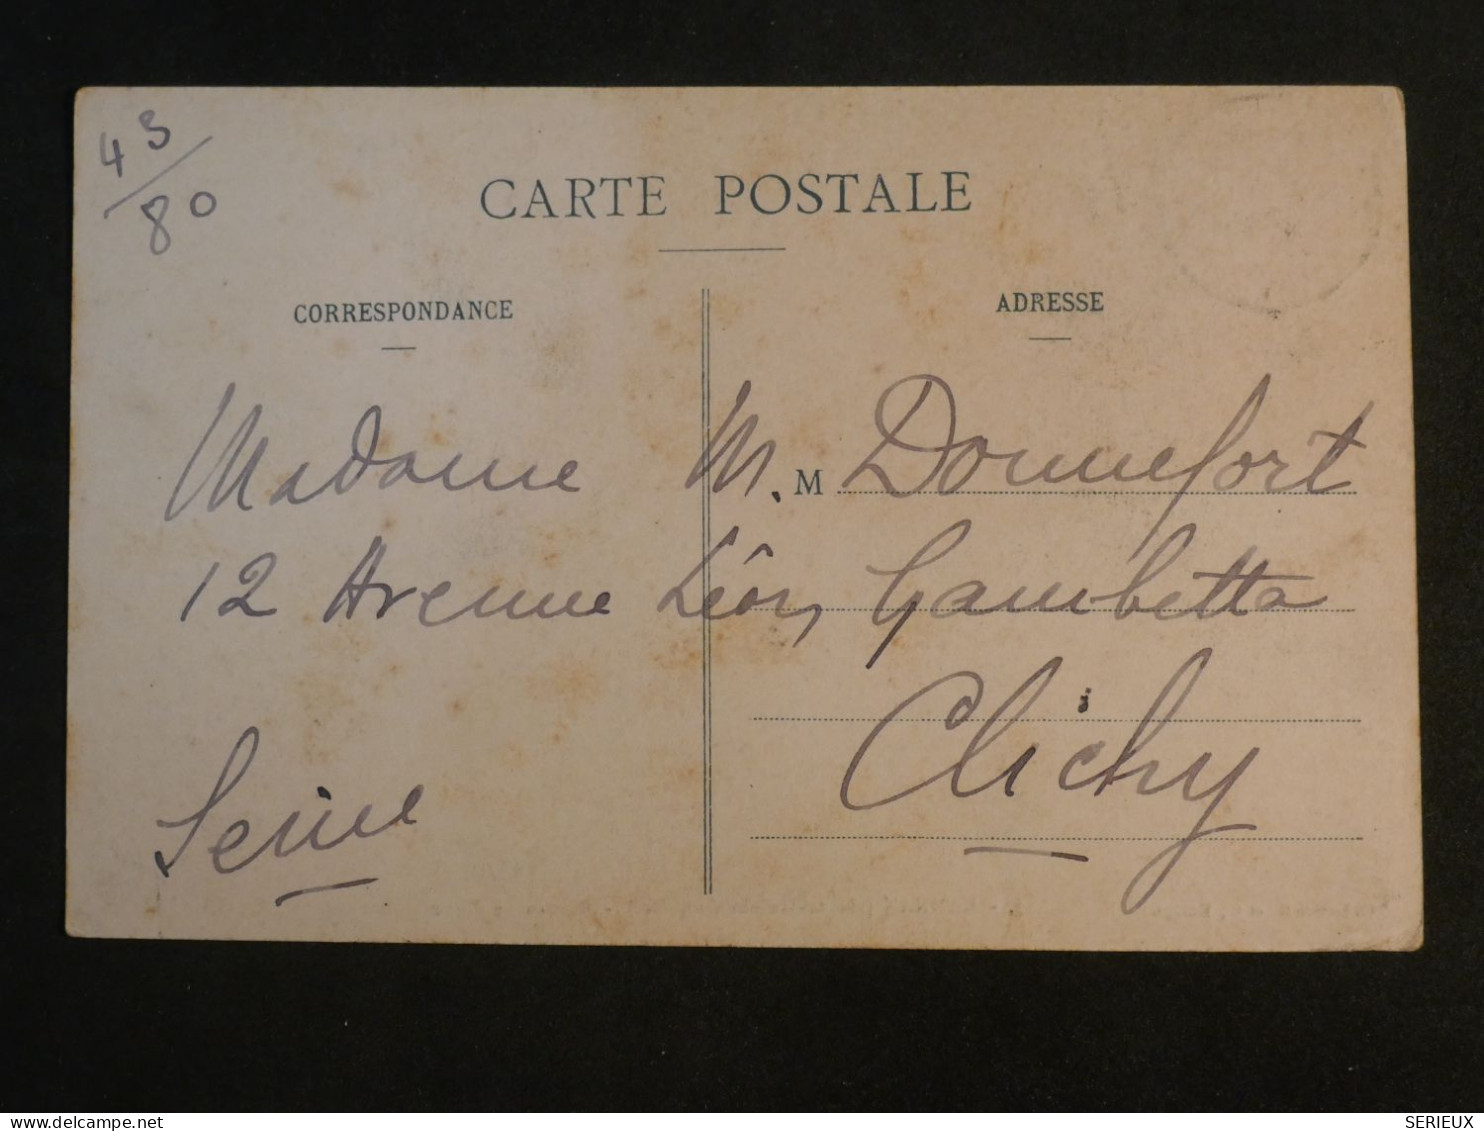 43/80
CARTE POSTALE
CORRESPONDANCE
ADRESSE
Madame M. M Donnefort
12 Avenue Léon Gambetta
Clichy
Seine
SERIEUX